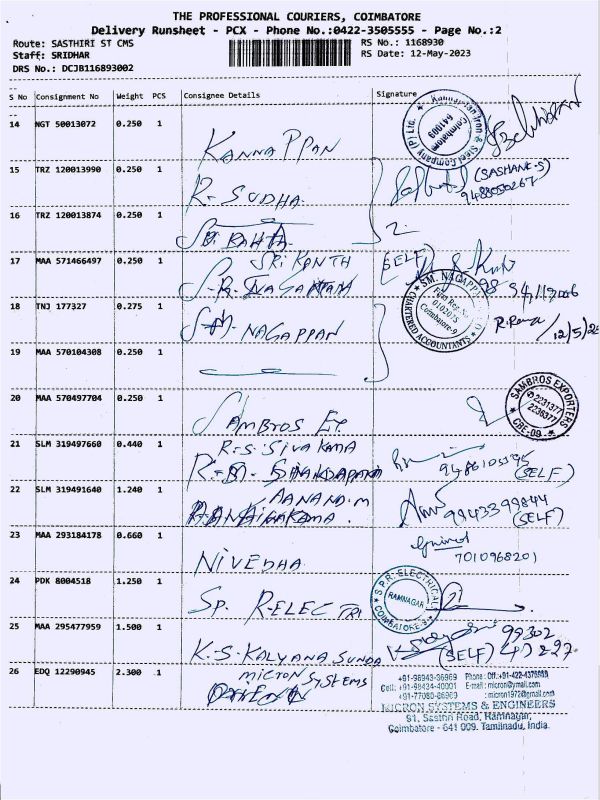 THE PROFESSIONAL COURIERS, COIMBATORE
Delivery Runsheet - PCX - Phone No.:0422-3505555 - Page No.:2
Route: SASTHIRI ST CMS RS No.: 1168930
Staff: SRIDHAR RS Date: 12-May-2023
DRS No.: DCJB116893002
S No Consignment No Weight PCS Consignee Details Signature
14 NGT 50013072 0.250 1 KANNAPPAN
Coimbatore 641009
Steel Company (P) Ltd.
15 TRZ 120013990 0.250 1 R. SUDHA (SASHANK.S)
9488050267
16 TRZ 120013874 0.250 1
17 MAA 571466497 0.250 1 SRIKANTH (SELF)
S.M. NAGAPPAN
Firm Reg. No.
010207S
Coimbatore-9
CHARTERED ACCOUNTANTS
18 TNJ 177327 0.275 1 NAGAPPAN
12/5/23
19 MAA 570104308 0.250 1
20 MAA 570497704 0.250 1 SAMBROS EX
SAMBROS EXPORTERS
2231377
2236377
CBE-09
21 SLM 319497660 0.440 1 R.S. SIVAKAMA
9486105395
(SELF)
22 SLM 319491640 1.240 1 AANAND.M
9943399844
(SELF)
23 MAA 293184178 0.660 1 NIVEDHA
7010968201
24 PDK 8004518 1.250 1 SP. R-ELECTRI
S.P.R. ELECTRICAL
RAMNAGAR
COIMBATORE-9
25 MAA 295477959 1.500 1 K.S. KALYANA SUNDA 99302
(SELF) 47227
26 EDQ 12290945 2.300 1 MICRON SYSTEMS
+91-98943-36969 Phone : Off.:+91-422-4376969
Cell: +91-98434-40001 E-mail : micron@ymail.com
+91-77080-86969 : micron1972@gmail.com
MICRON SYSTEMS & ENGINEERS
91, Sasthri Road, Ramnagar,
Coimbatore - 641 009. Tamilnadu, India.